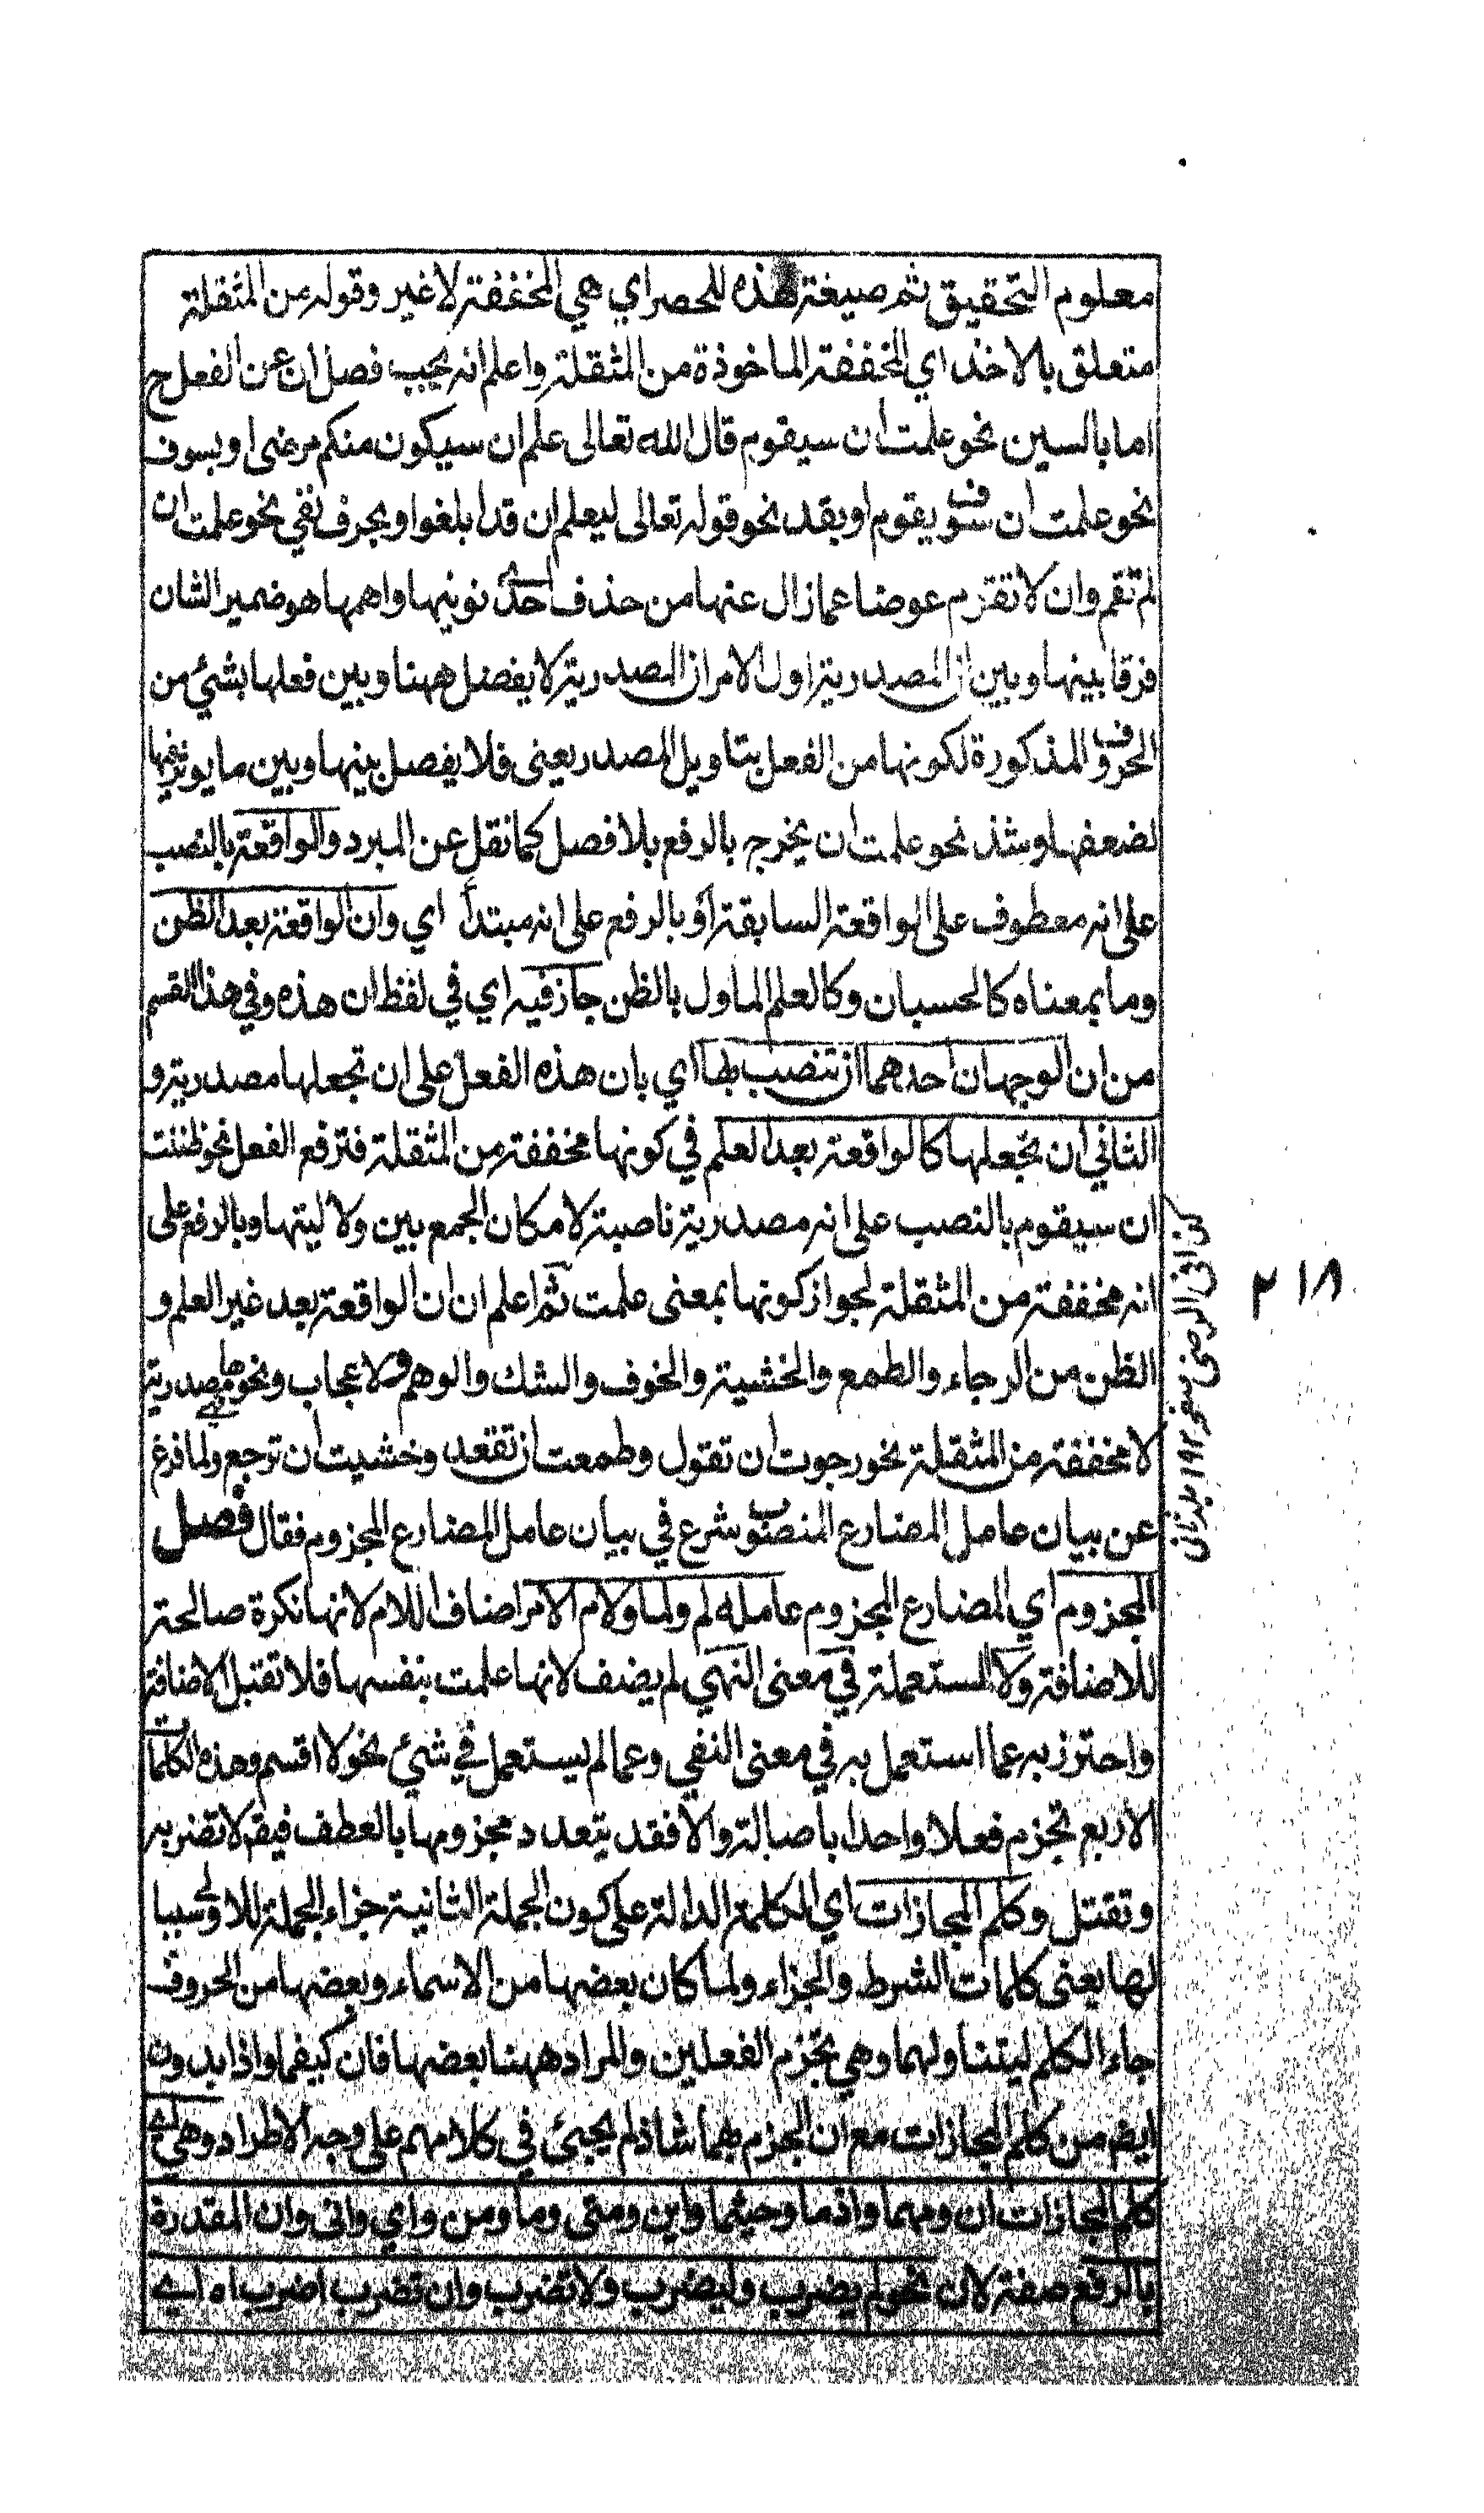 معلوم التحقيق ثم صيغة هذه للحصر اي هي المخففة لا غير وقوله من المثقلة
متعلق بالاخذ اي المخففة الماخوذة من المثقلة واعلم انه يجب فصل ان عن الفعل ح
اما بالسين نحو علمت ان سيقوم قال الله تعالى علم ان سيكون منكم مرضى او بسوف
نحو علمت ان سوف يقوم او بقد نحو قوله تعالى ليعلم ان قد ابلغوا وبحرف نفي نحو علمت ان
لم تقم وان لا تقوم عوضا عما زال عنها من حذف احدى نونيها واهمها هو ضمير الشان
فرقا بينها وبين ان المصدرية اول الامر ان المصدرية لا يفصل ههنا وبين فعلها بشيء من
الحروف المذكورة لكونها من الفعل بتاويل المصدر يعنى فلا يفصل بينها وبين ما يوثر فيها
لضعفها وشذ نحو علمت ان يخرج بالرفع بلا فصل كما نقل عن المبرد والواقعة بالنصب
على انه معطوف على الواقعة السابقة او بالرفع على انه مبتدأ اي وان الواقعة بعد الظن
وما بمعناه كالحسبان وكالعلم الماول بالظن جاز فيه اي في لفظ ان هذه وفي هذا القسم
من ان الوجهان احدهما ان تنصب بها اي بان هذه الفعل على ان تجعلها مصدرية و
الثاني ان تجعلها كالواقعة بعد العلم في كونها مخففة من المثقلة فترفع الفعل نحو ظننت
ان سيقوم بالنصب على انه مصدرية ناصبة لامكان الجمع بين ولا ليتها وبالرفع على
انه مخففة من المثقلة لجواز كونها بمعنى علمت ثم اعلم ان ان الواقعة بعد غير العلم و
الظن من الرجاء والطمع والخشية والخوف والشك والوهم والاعجاب ونحوها مصدرية
لا مخففة من المثقلة نحو رجوت ان تقول وطمعت ان تقعد وخشيت ان ترجع ولما فرغ
عن بيان عامل المضارع المنصوب شرع في بيان عامل المضارع المجزوم فقال فصل
المجزوم اي المضارع المجزوم عامله لم ولما ولام الامر اضاف اللام لانها نكرة صالحة
للاضافة ولا المستعملة في معنى النهي لم يضف لانها علمت بنفسها فلا تقبل الاضافة
واحترز به عما استعمل به في معنى النفي وعما لم يستعمل في شيء نحو لا اقسم وهذه الكلمات
الاربع تجزم فعلا واحدا باصالة والا فقد يتعدد مجزومها بالعطف فيقم لا تضربه
وتقتل وكلم المجازات اي الكلمة الدالة على كون الجملة الثانية جزاء للجملة للاولى سببا
لها يعنى كلمات الشرط والجزاء ولما كان بعضها من الاسماء وبعضها من الحروف
جاء الكلم ليتناولهما وهي تجزم الفعلين والمراد ههنا بعضها فان كيفما واذا بدون
ايضم من كلم المجازات مع ان الجزم بهما شاذ لم يجئ في كلامهم على وجه الاطراد وهي اي
كلم المجازات ان ومهما واذما وحيثما واين ومتى وما ومن واي وانى وان المقدرة
بالرفع صفة لان نحو لم يضرب وليضرب ولا تضرب وان تضرب اضرب اه اے
٢١٨